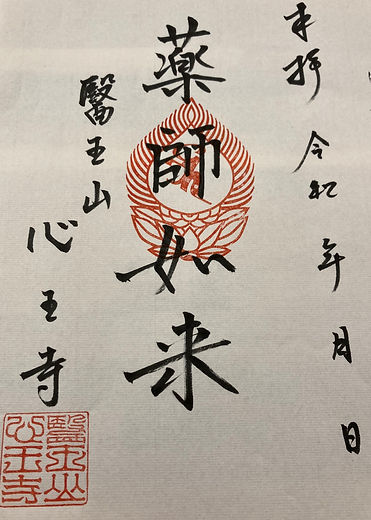 奉拝 令和 年 月 日
薬師如来
醫王山
心王寺
醫王山
心王寺